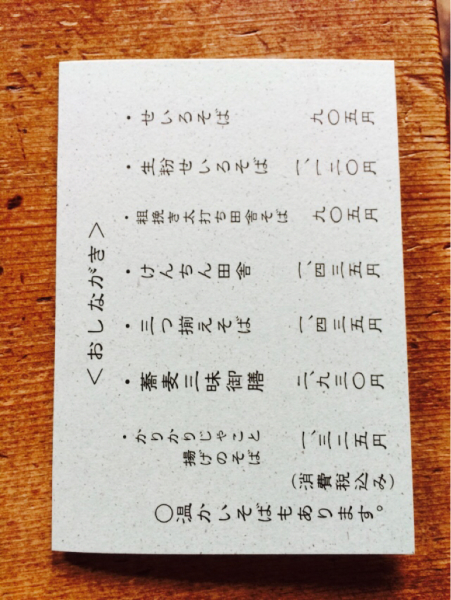 ＜おしながき＞
・せいろそば　九〇五円
・生粉せいろそば　一、一二〇円
・粗挽き太打ち田舎そば　九〇五円
・けんちん田舎　一、四三五円
・三つ揃えそば　一、四三五円
・蕎麦三昧御膳　二、九三〇円
・かりかりじゃこと
揚げのそば　一、三二五円
（消費税込み）
〇温かいそばもあります。